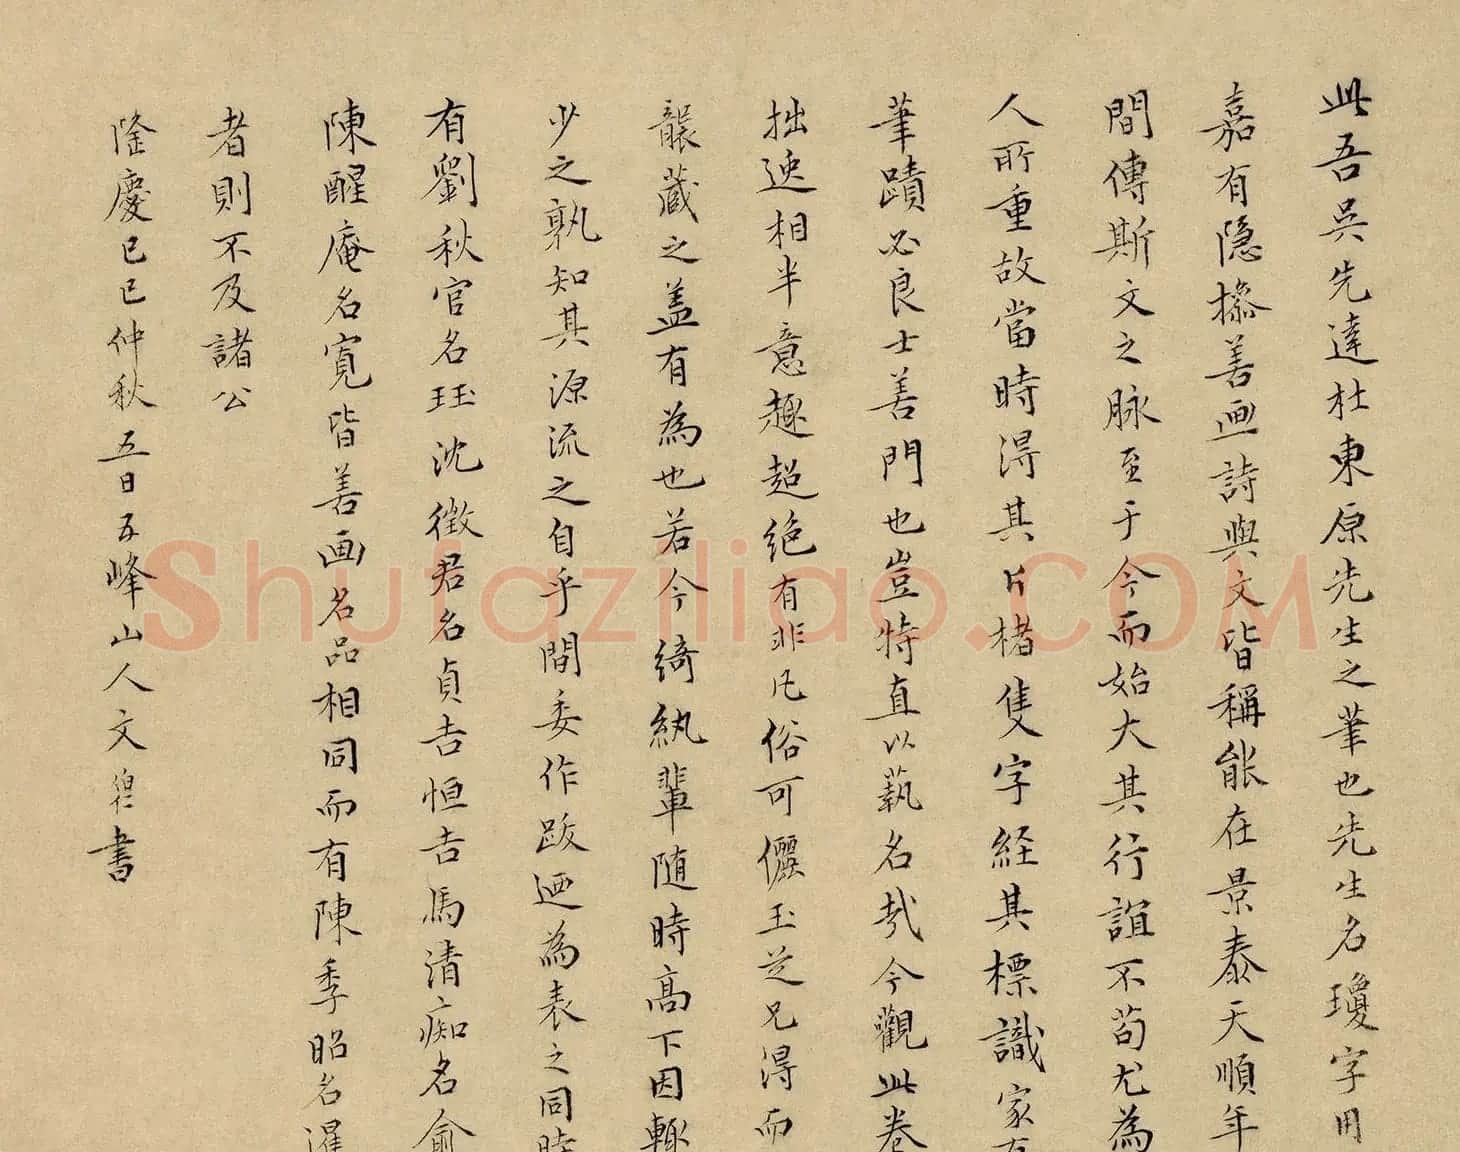 此吾吴先達杜東原先生之筆也先生名瓊字用
嘉有隐操善画詩與文皆稱能在景泰天順年
間傳斯文之脉至于今而始大其行誼不苟尤為
人所重故當時淂其片楮隻字経其標識家有
筆蹟必良士善門也豈特直以藝名哉今觀此卷
拙速相半意趣超绝有非凡俗可儷玉芝兄淂而
襲蔵之盖有為也若今綺紈輩随時髙下因輙
少之孰知其源流之自乎間委作跋迺為表之同時
有劉秋官名珏沈徵君名貞吉恒吉馬清痴名俞
陳醒庵名寛皆善画名品相同而有陳季昭名暹
者則不及諸公
隆慶己巳仲秋五日五峰山人文伯仁書
Shufaziliao.COM